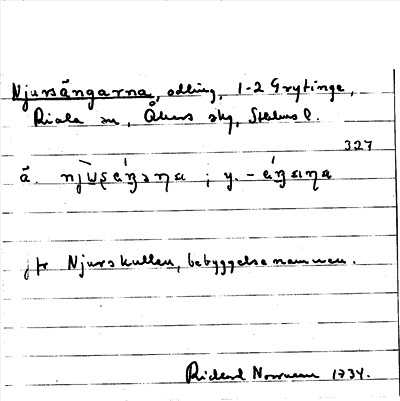 Njursängarna, odling, 1-2 Grytinge,
Riala sn, Åkers skg, Sthlms l.
327
ä. ; y. -
jfr Njurskullen, bebyggelsenamnen.
Rickard Norrman 1934.